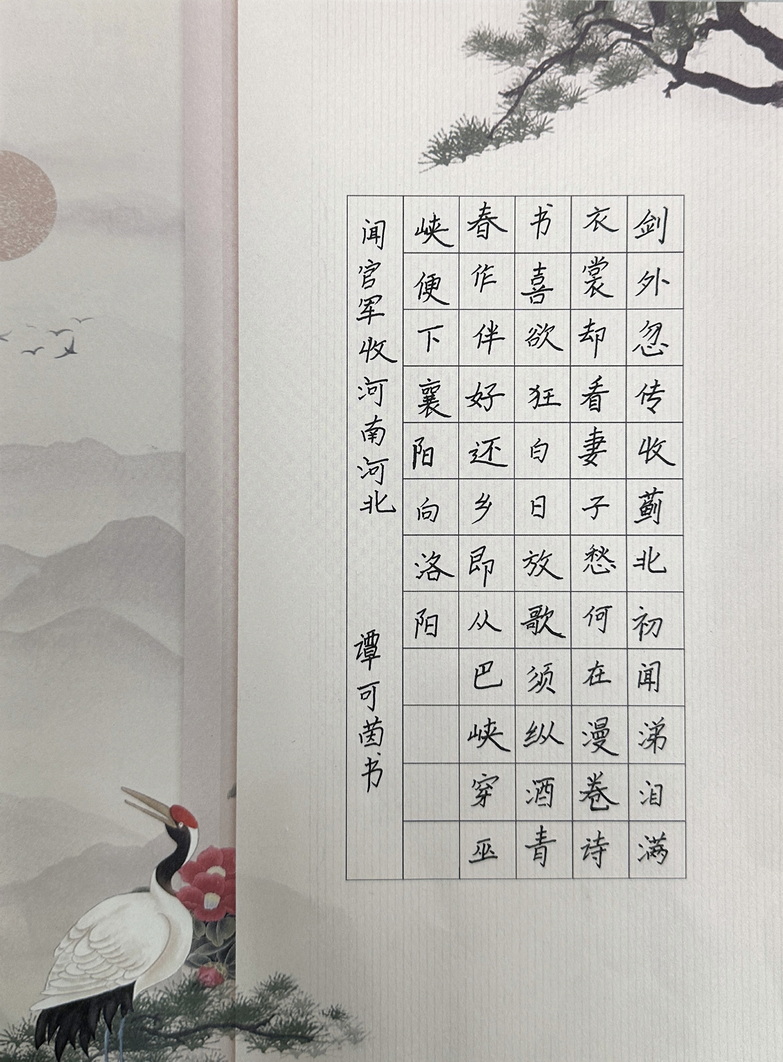 剑外忽传收蓟北初闻涕泪满
衣裳却看妻子愁何在漫卷诗
书喜欲狂白日放歌须纵酒青
春作伴好还乡即从巴峡穿巫
峡便下襄阳向洛阳
闻官军收河南河北 谭可茵书